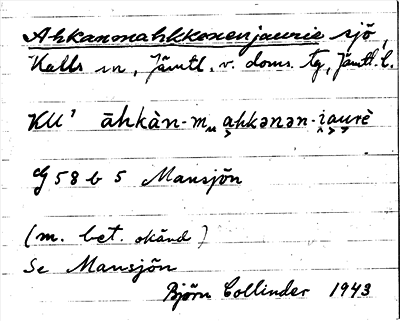 Ahkanmahkkenenjaurie sjö,
Kalls sn, Jämtl. v. doms. tg, Jämtl. l.
KU¹ āhkàn-m ahkənən-i̯au̯rè
G 58 b 5 Mansjön
(m. bet. okänd)
Se Mansjön
Björn Collinder 1943